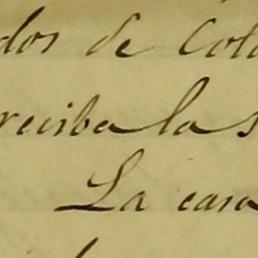 dos de Col
reciba la s
La casa